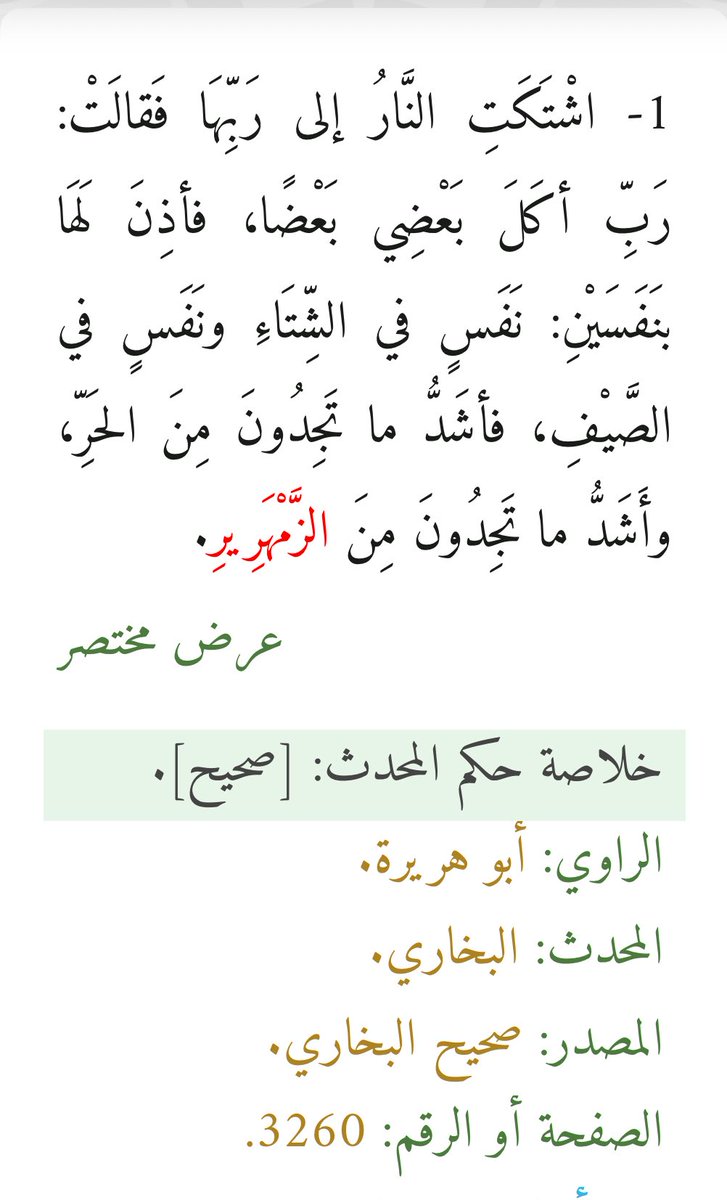 1- اشْتَكَتِ النَّارُ إلى رَبِّهَا فَقالَتْ:
رَبِّ أكَلَ بَعْضِي بَعْضًا، فأذِنَ لَهَا
بنَفَسَيْنِ: نَفَسٍ في الشِّتَاءِ ونَفَسٍ في
الصَّيْفِ، فأشَدُّ ما تَجِدُونَ مِنَ الحَرِّ،
وأَشَدُّ ما تَجِدُونَ مِنَ الزَّمْهَرِيرِ.
عرض مختصر
خلاصة حكم المحدث: [صحيح].
الراوي: أبو هريرة.
المحدث: البخاري.
المصدر: صحيح البخاري.
الصفحة أو الرقم: 3260.